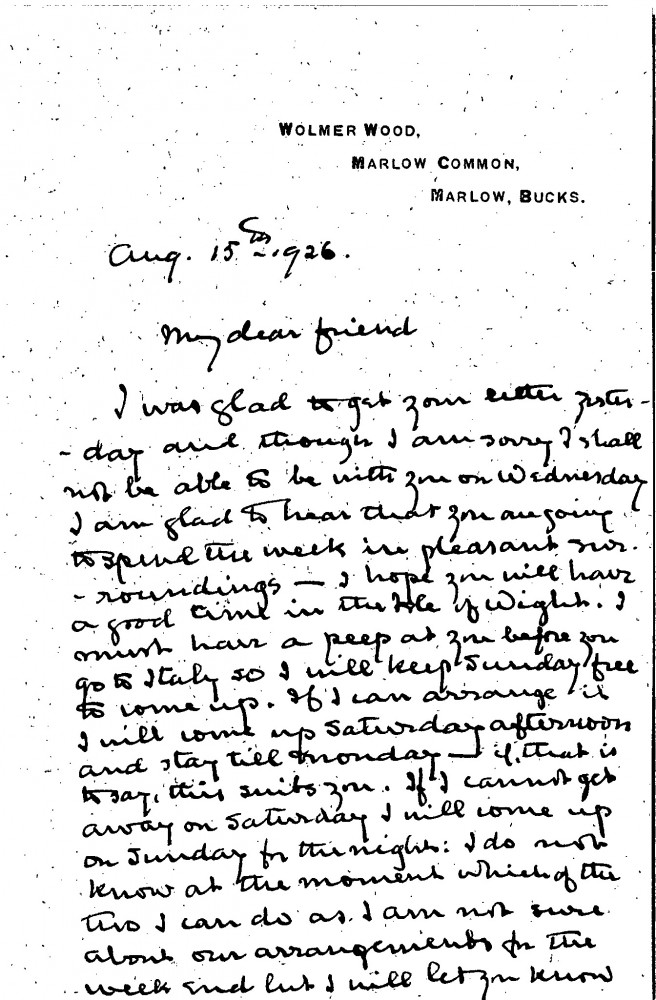 WOLMER WOOD,
MARLOW COMMON,
MARLOW, BUCKS.
Aug. 15th 1926.
My dear friend
I was glad to get your letter yester-
-day and though I am sorry I shall
not be able to be with you on Wednesday
I am glad to hear that you are going
to spend the week in pleasant sur-
-roundings — I hope you will have
a good time in the Isle of Wight. I
must have a peep at you before you
go to Italy so I will keep Sunday free
to come up. If I can arrange it
I will come up Saturday afternoon
and stay till Monday — if, that is
to say, this suits you. If I cannot get
away on Saturday I will come up
on Sunday for the night: I do not
know at the moment which of the
two I can do as I am not sure
about our arrangements for the
week end but I will let you know